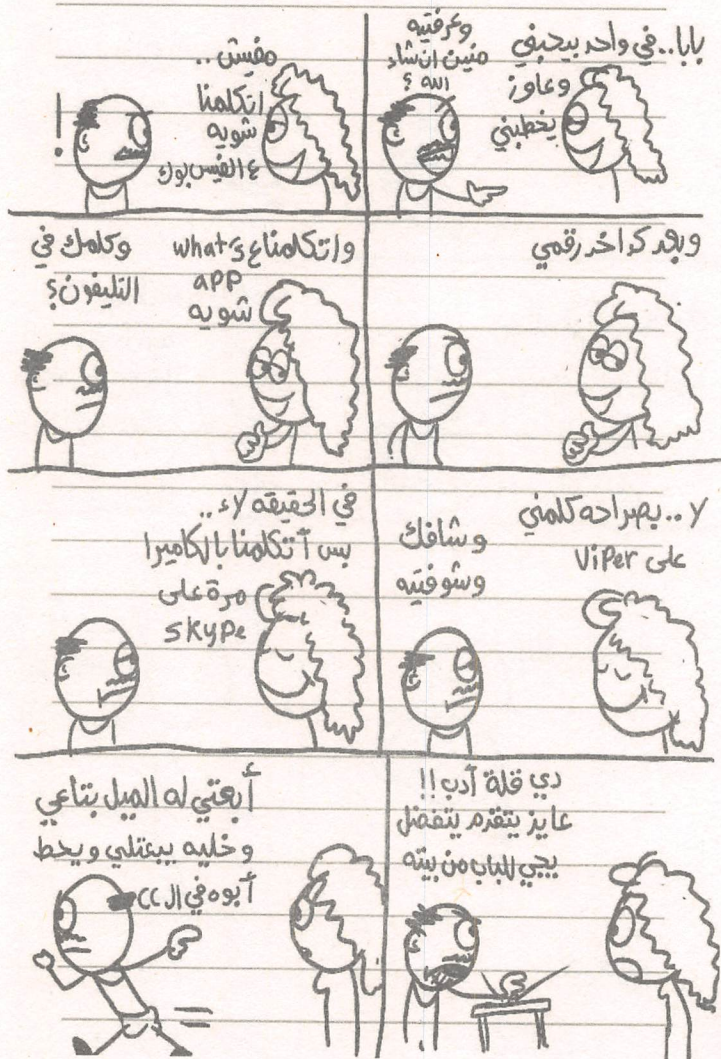 بابا..في واحد بيحبني
وعاوز
يخطبني
وعرفتيه
منين ان شاء
الله ؟
مفيش ..
اتكلمنا
شويه
ع الفيس بوك
!
وبعد كدا خد رقمي
واتكلمنا ع what's
app
شويه
وكلمك في
التليفون؟
لا .. بصراحه كلمني
على ViPer
وشافك
وشوفتيه
في الحقيقه لاء..
بس أتكلمنا بالكاميرا
مرة على
SKYPe
دي قلة أدب!!
عايز يتقدم يتفضل
يجي للباب من بيته
أبعتي له الميل بتاعي
و خليه يبعتلي ويحط
أبوه في ال CC